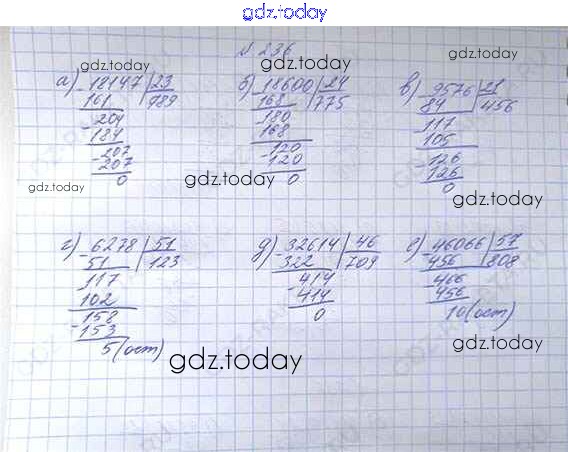 gdz.today
№ 236
gdz.today gdz.today gdz.today
а) 18147 | 23 б) 18600 | 24 в) 9576 | 21
161 989 168 775 84 456
204 180 117
184 168 105
207 120 126
207 120 126
0 0 0
gdz.today gdz.today gdz.today
г) 6278 | 51 д) 32614 | 46 е) 46066 | 57
51 123 322 709 456 808
117 414 466
102 414 456
158 0 10 (ост)
153
5 (ост)
gdz.today gdz.today